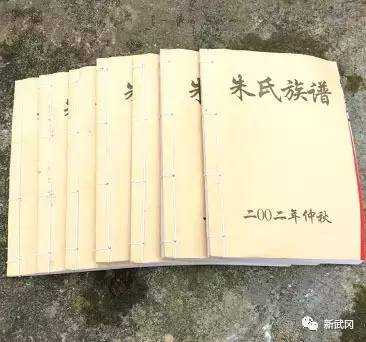 朱氏族谱
二00二年仲秋
新武冈